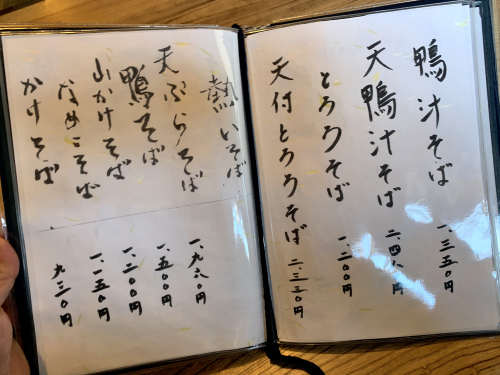 鴨汁そば 一、三五〇円
天鴨汁そば
とろろそば 一、二〇〇円
天付とろろそば 二、三三〇円
熱いそば
天ぷらそば 一、九八〇円
鴨そば
山かけそば 一、二〇〇円
なめこそば 一、一五〇円
かけそば 九三〇円